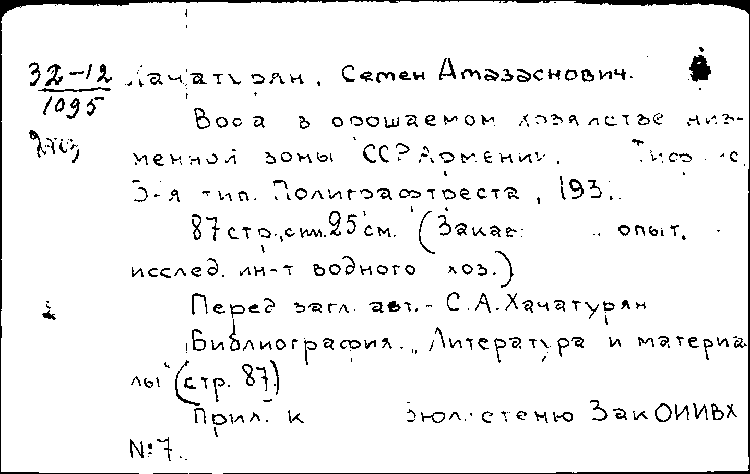 32-12 Хачатурян, Семен Амазаснович.
1095 Вода в орошаемом хозяйстве низ-
менной зоны ССР Армении.
3-я тип. Полиграфтреста, 193
87 стр., 25 см. (Закав. опыт.
исслед. ин-т водного хоз.)
Перед загл. авт.- С.А.Хачатурян
Библиография. "Литература и материа
лы" (стр. 87.)
Прил. к бюллетеню ЗакОИИВХ
№ 7.